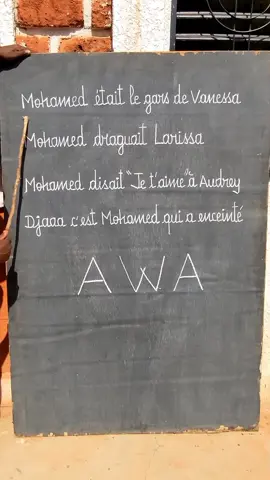 Mohamed était le gars de Vanessa
Mohamed draguait Larissa
Mohamed disait "Je t'aime" à Audrey
Djaaa c'est Mohamed qui a enceinté
AWA